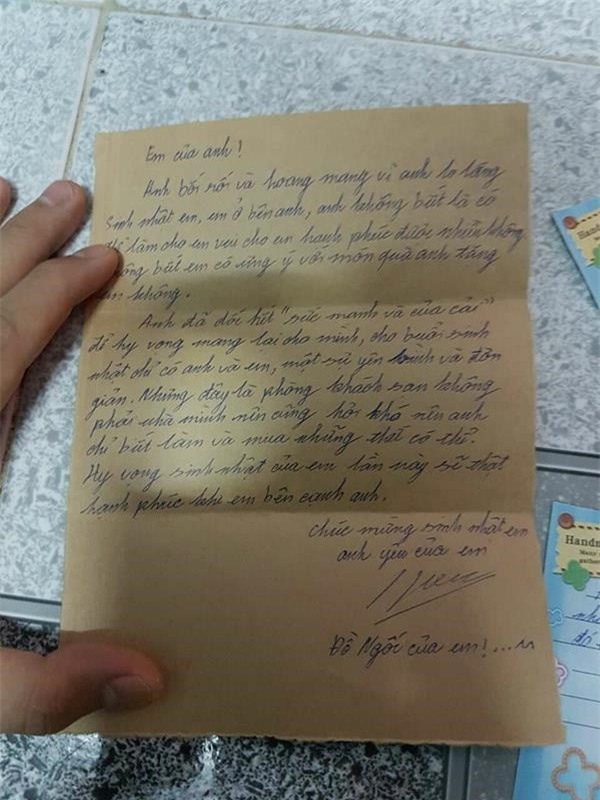 Em của anh!
Anh bối rối và hoang mang vì anh lo lắng
Sinh nhật em, em ở bên anh, anh không biết là có
thể làm cho em vui cho em hạnh phúc được nhiều không
không biết em có ưng ý với món quà anh đăng
không.
Anh đã dốc hết "sức mạnh và của cải"
để hy vọng mang lại cho mình, cho buổi sinh
nhật chỉ có anh và em, một sự yên bình và đơn
giản. Nhưng đây là phòng khách sạn không
phải nhà mình nên cũng hơi khó nên anh
chỉ biết làm và mua những thứ có thể.
Hy vọng sinh nhật của em lần này sẽ thật
hạnh phúc khi em bên cạnh anh.
Chúc mừng sinh nhật em
anh yêu của em
Đồ Ngốc của em!...^^
Handm
Handm